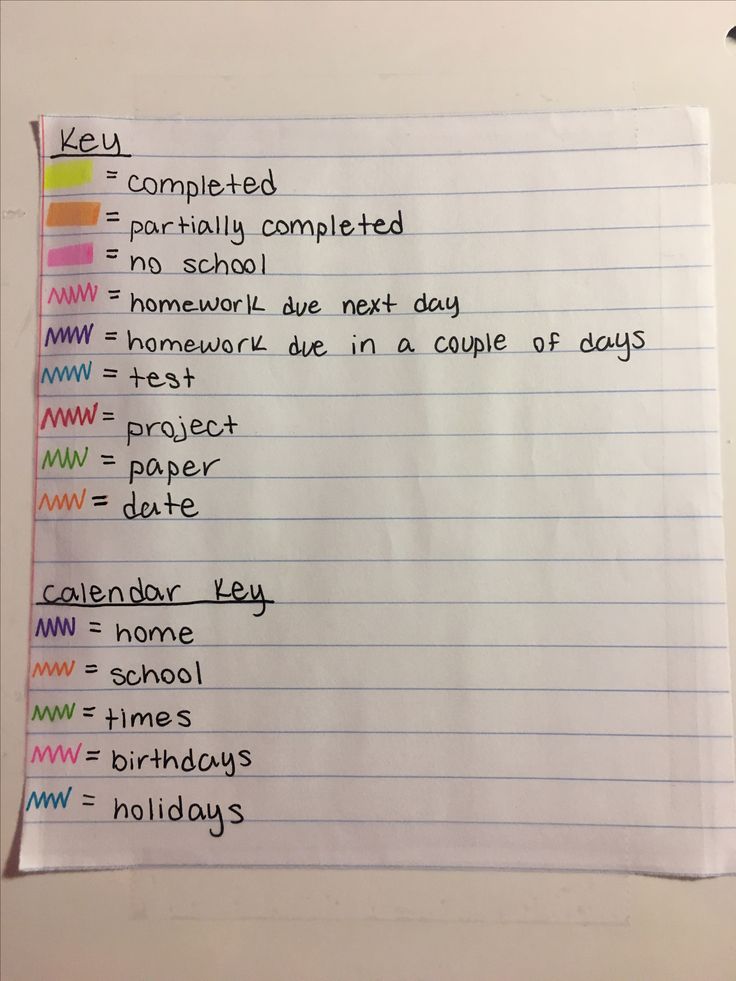 Key
= completed
= partially completed
= no school
= homework due next day
= homework due in a couple of days
= test
= project
= paper
= date
calendar key
= home
= school
= times
= birthdays
= holidays